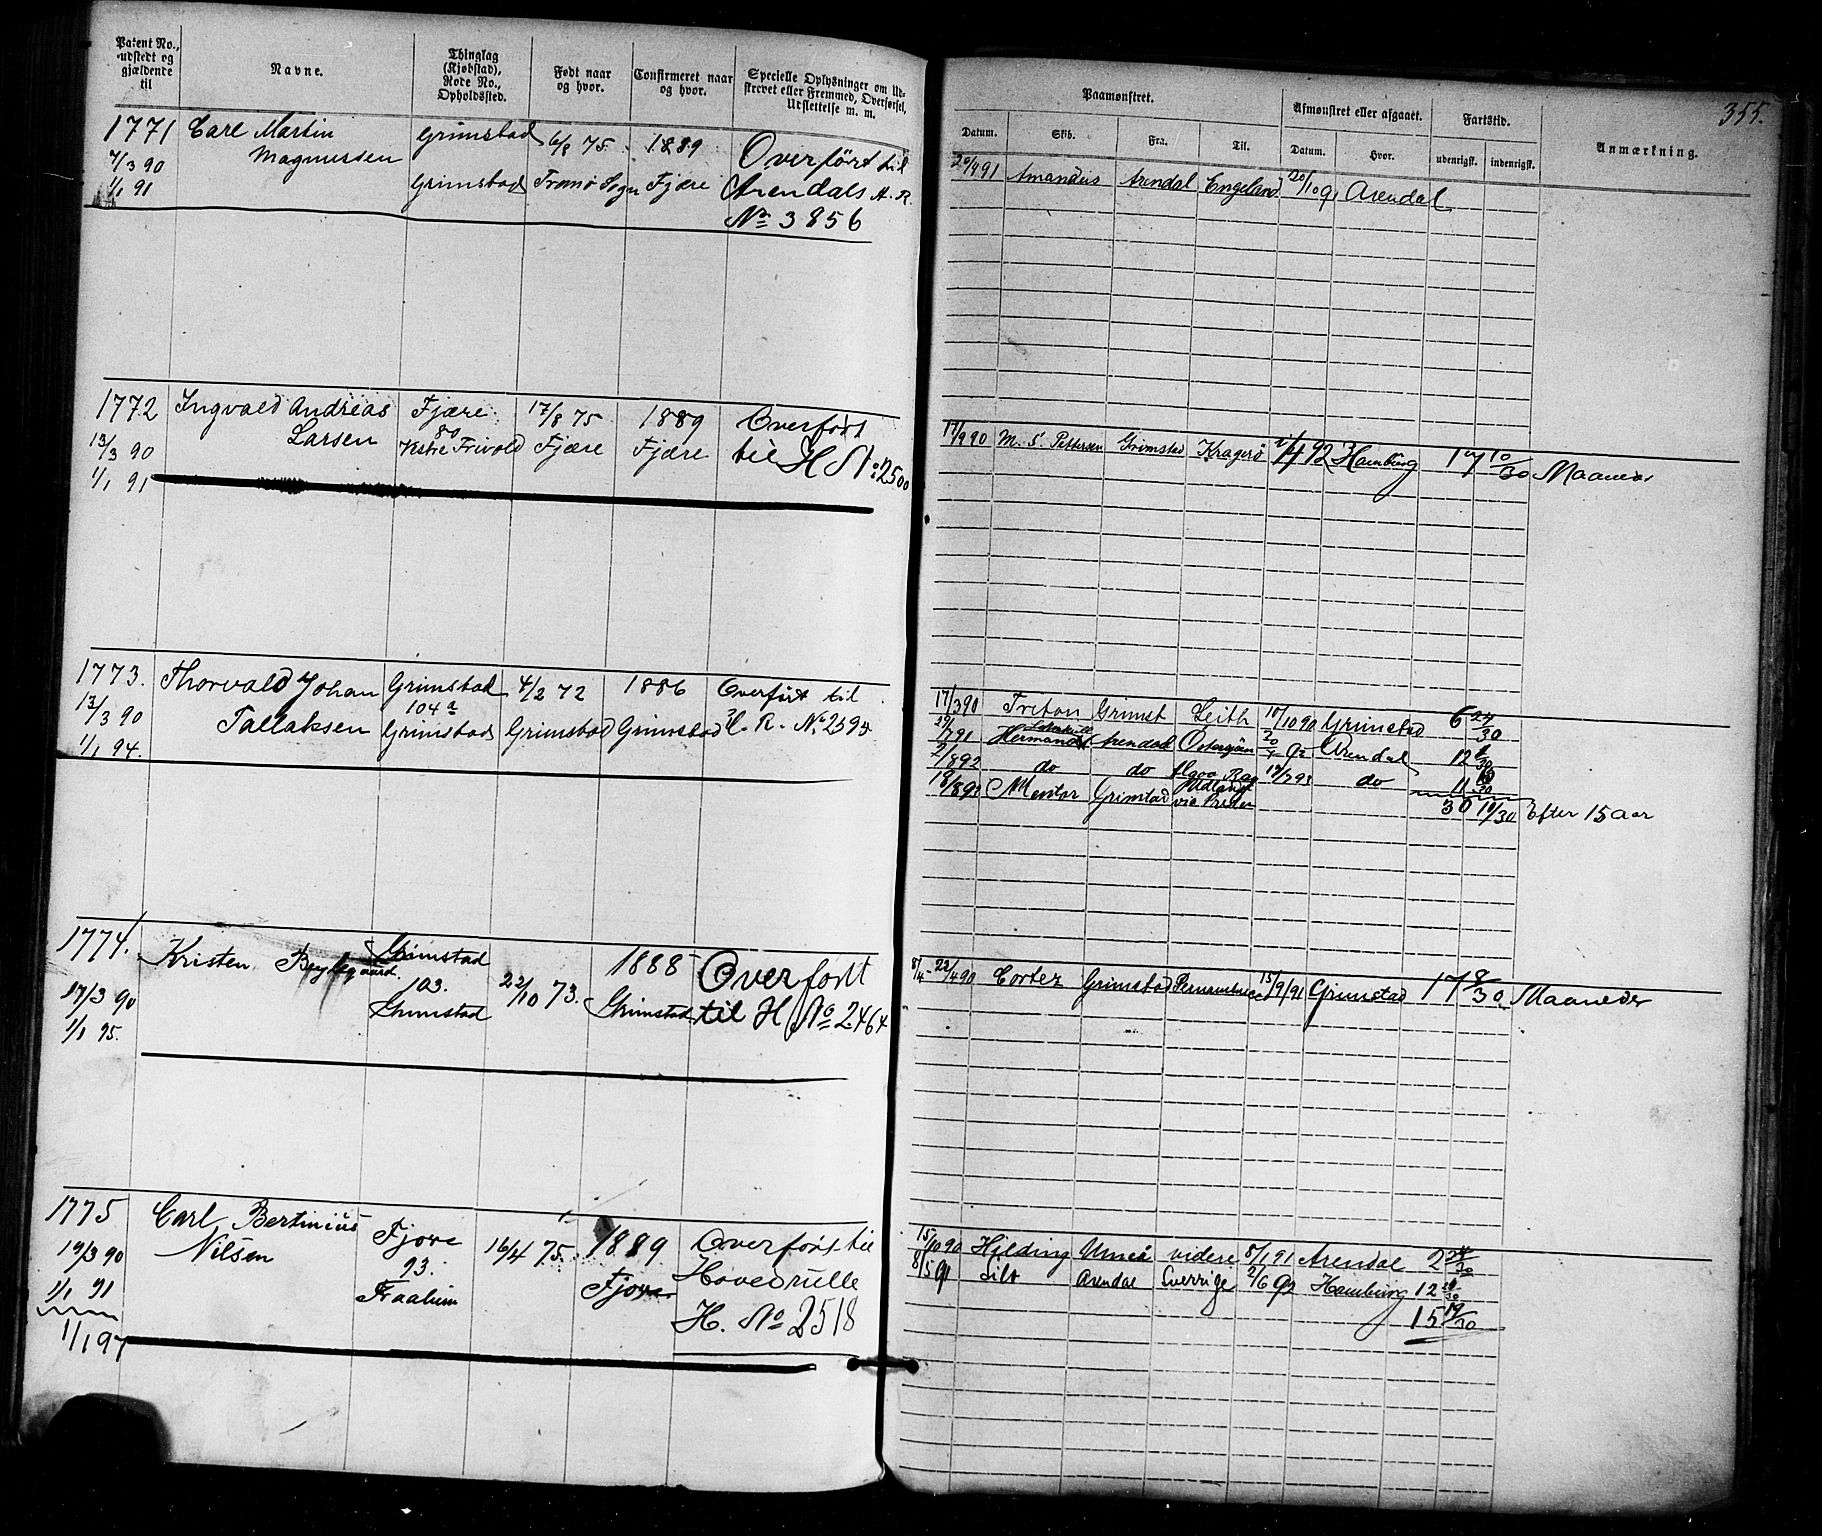 Patent No., udstedt og gjældende til
Navne.
Thinglag (Kjøbstad), Rode No., Opholdssted.
Født naar og hvor.
Confirmeret naar og hvor.
Specielle Oplysninger om Udstrevet eller Fremmed, Overførsel, Udslettelse m. m.
Paamønstret.
Afmønstret eller afgaaet.
Fartstid.
Anmærkning.
355.
Datum. Skib. Fra. Til. Datum. Hvor. udenrigsk. indenrigsk.
1771 Carl Martin Grimstad 6/8 75. 1889 Overført til
7/3 90 Magnussen
1/1 91 Grimstad Tromø Sogn Fjære Arendals A. R.
No 3856
20/4 91 Amandus Arendal Engeland 20/10 91 Arendal
1772 Ingvald Andreas Fjære 17/8 75 1889 Overført
13/3 90 Larsen 80 Vestre Frivold Fjære Fjære til H No 2500
1/1 91
17/9 90 M. S. Pettersen Grimstad Kragerö /4 92 Hamburg 17 10/30 Maaneder
1773. Thorvald Johan Grimstad 4/2 72 1886 Overført til
13/3 90 Tallaksen 104 a Grimstad Grimstad Grimstad H. R. No 2595
1/1 94.
17/3 90 Triton Grimst Leith 10/10 90 Grimstad 6 24/30
/7 91 Hermanos Arendal Østersjøen Arendal 12
2/8 92 do do Algoa Bay 19/7 93 do 11
18/8 93 Mentor Grimstad Udlandet via
30 19/30 Efter 15 Aar
1774. Kristen Beylegaard. Grimstad 22/10 73. 1888 Overført
17/3 90 103. Grimstad Grimstad til H No 2464
1/1 95.
8/4- 22/4 90 Cortez Grimstad Pernambuco 15/9 91 Grimstad 17 8/30 Maaneder
1775 Carl Bertinius Fjære 16/4 75. 1889 Overført til
19/3 90 Nilsen 93. Fjære Hovedrulle
1/1 91 H. No 2518
1/1 97
15/10 90 Hilding Umeå videre 8/1 91 Arendal 2 24/30
8/5 91 Silo Arendal Sverrige 2/6 92 Hamburg 12
15 19/30